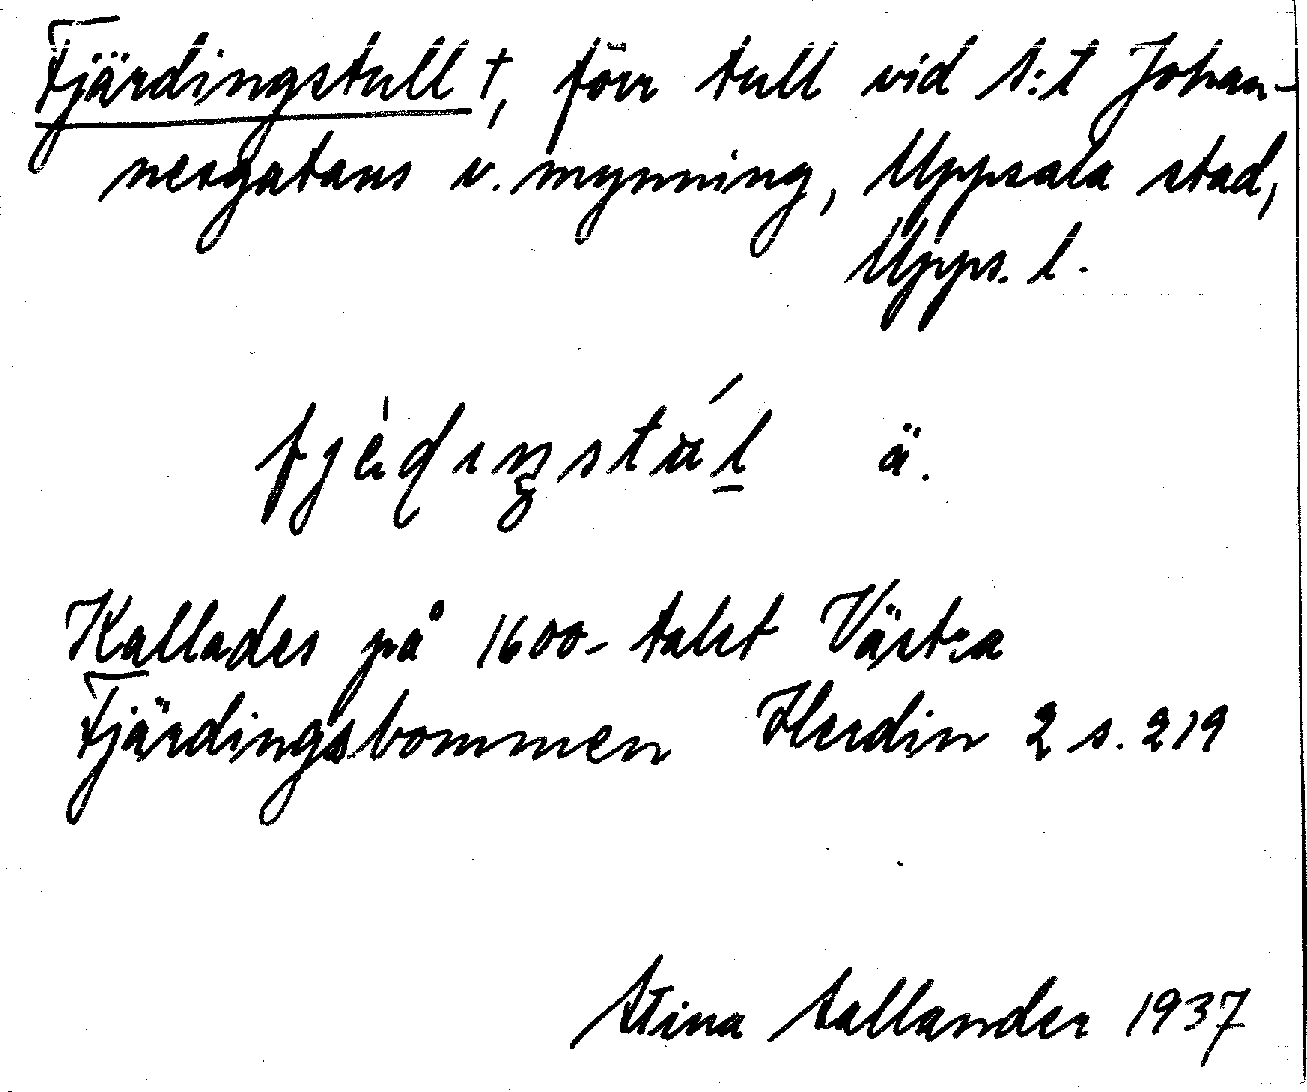 Fjärdingstull †, förr tull vid S:t Johan-
nesgatans v. mynning, Uppsala stad,
Upps. l.
ä.
Kallades på 1600-talet Västra
Fjärdingsbommen Herdin 2 s. 219
Stina Sallander 1937